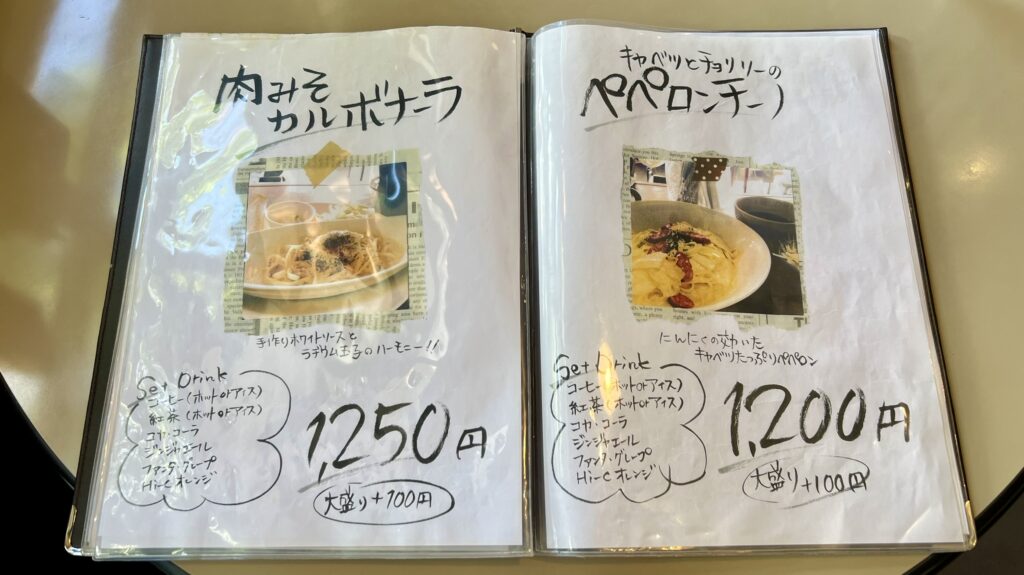 肉みそ
カルボナーラ
手作りホワイトソースと
ラヂウム玉子のハーモニー!!
Set Drink
コーヒー(ホットorアイス)
紅茶(ホットorアイス)
コカ・コーラ
ジンジャエール
ファンタ・グレープ
Hi-C オレンジ
1,250円
大盛り+100円
キャベツとチョリソーの
ペペロンチーノ
にんにくの効いた
キャベツたっぷりペペロン
Set Drink
コーヒー(ホットorアイス)
紅茶(ホットorアイス)
コカ・コーラ
ジンジャエール
ファンタ・グレープ
Hi-C オレンジ
1,200円
大盛り+100円